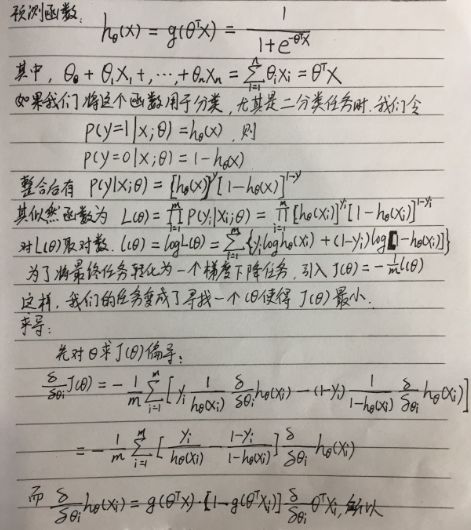 预测函数:
hθ(X) = g(θᵀX) = 1/(1+e^(-θᵀX))
其中, θ₀ + θ₁X₁ + ,⋯, + θₙXₙ = Σ_{i=1}^{n} θᵢXᵢ = θᵀX
如果我们将这个函数用于分类,尤其是二分类任务时,我们令
P(y=1|x;θ) = hθ(x), 则
P(y=0|x;θ) = 1-hθ(x)
整合后有 P(y|x;θ) = [hθ(x)]^y [1-hθ(x)]^(1-y)
其似然函数为 L(θ) = Π_{i=1}^{m} P(yᵢ|xᵢ;θ) = Π_{i=1}^{m} [hθ(xᵢ)]^(yᵢ) [1-hθ(xᵢ)]^(1-yᵢ)
对L(θ)取对数. l(θ) = logL(θ) = Σ_{i=1}^{m} {yᵢloghθ(xᵢ) + (1-yᵢ)log[1-hθ(xᵢ)]}
为了将最终任务转化为一个梯度下降任务,引入 J(θ) = -1/m l(θ)
这样,我们的任务变成了寻找一个θ使得 J(θ) 最小.
求导:
先对θ求J(θ)偏导:
δ/δθᵢ J(θ) = -1/m Σ_{i=1}^{m} [yᵢ 1/hθ(xᵢ) δ/δθᵢ hθ(xᵢ) - (1-yᵢ) 1/(1-hθ(xᵢ)) δ/δθᵢ hθ(xᵢ)]
= -1/m Σ_{i=1}^{m} [yᵢ/hθ(xᵢ) - (1-yᵢ)/(1-hθ(xᵢ))] δ/δθᵢ hθ(xᵢ)
而 δ/δθᵢ hθ(xᵢ) = g(θᵀX)·[1-g(θᵀXᵢ)] δ/δθᵢ θᵀXᵢ, 所以